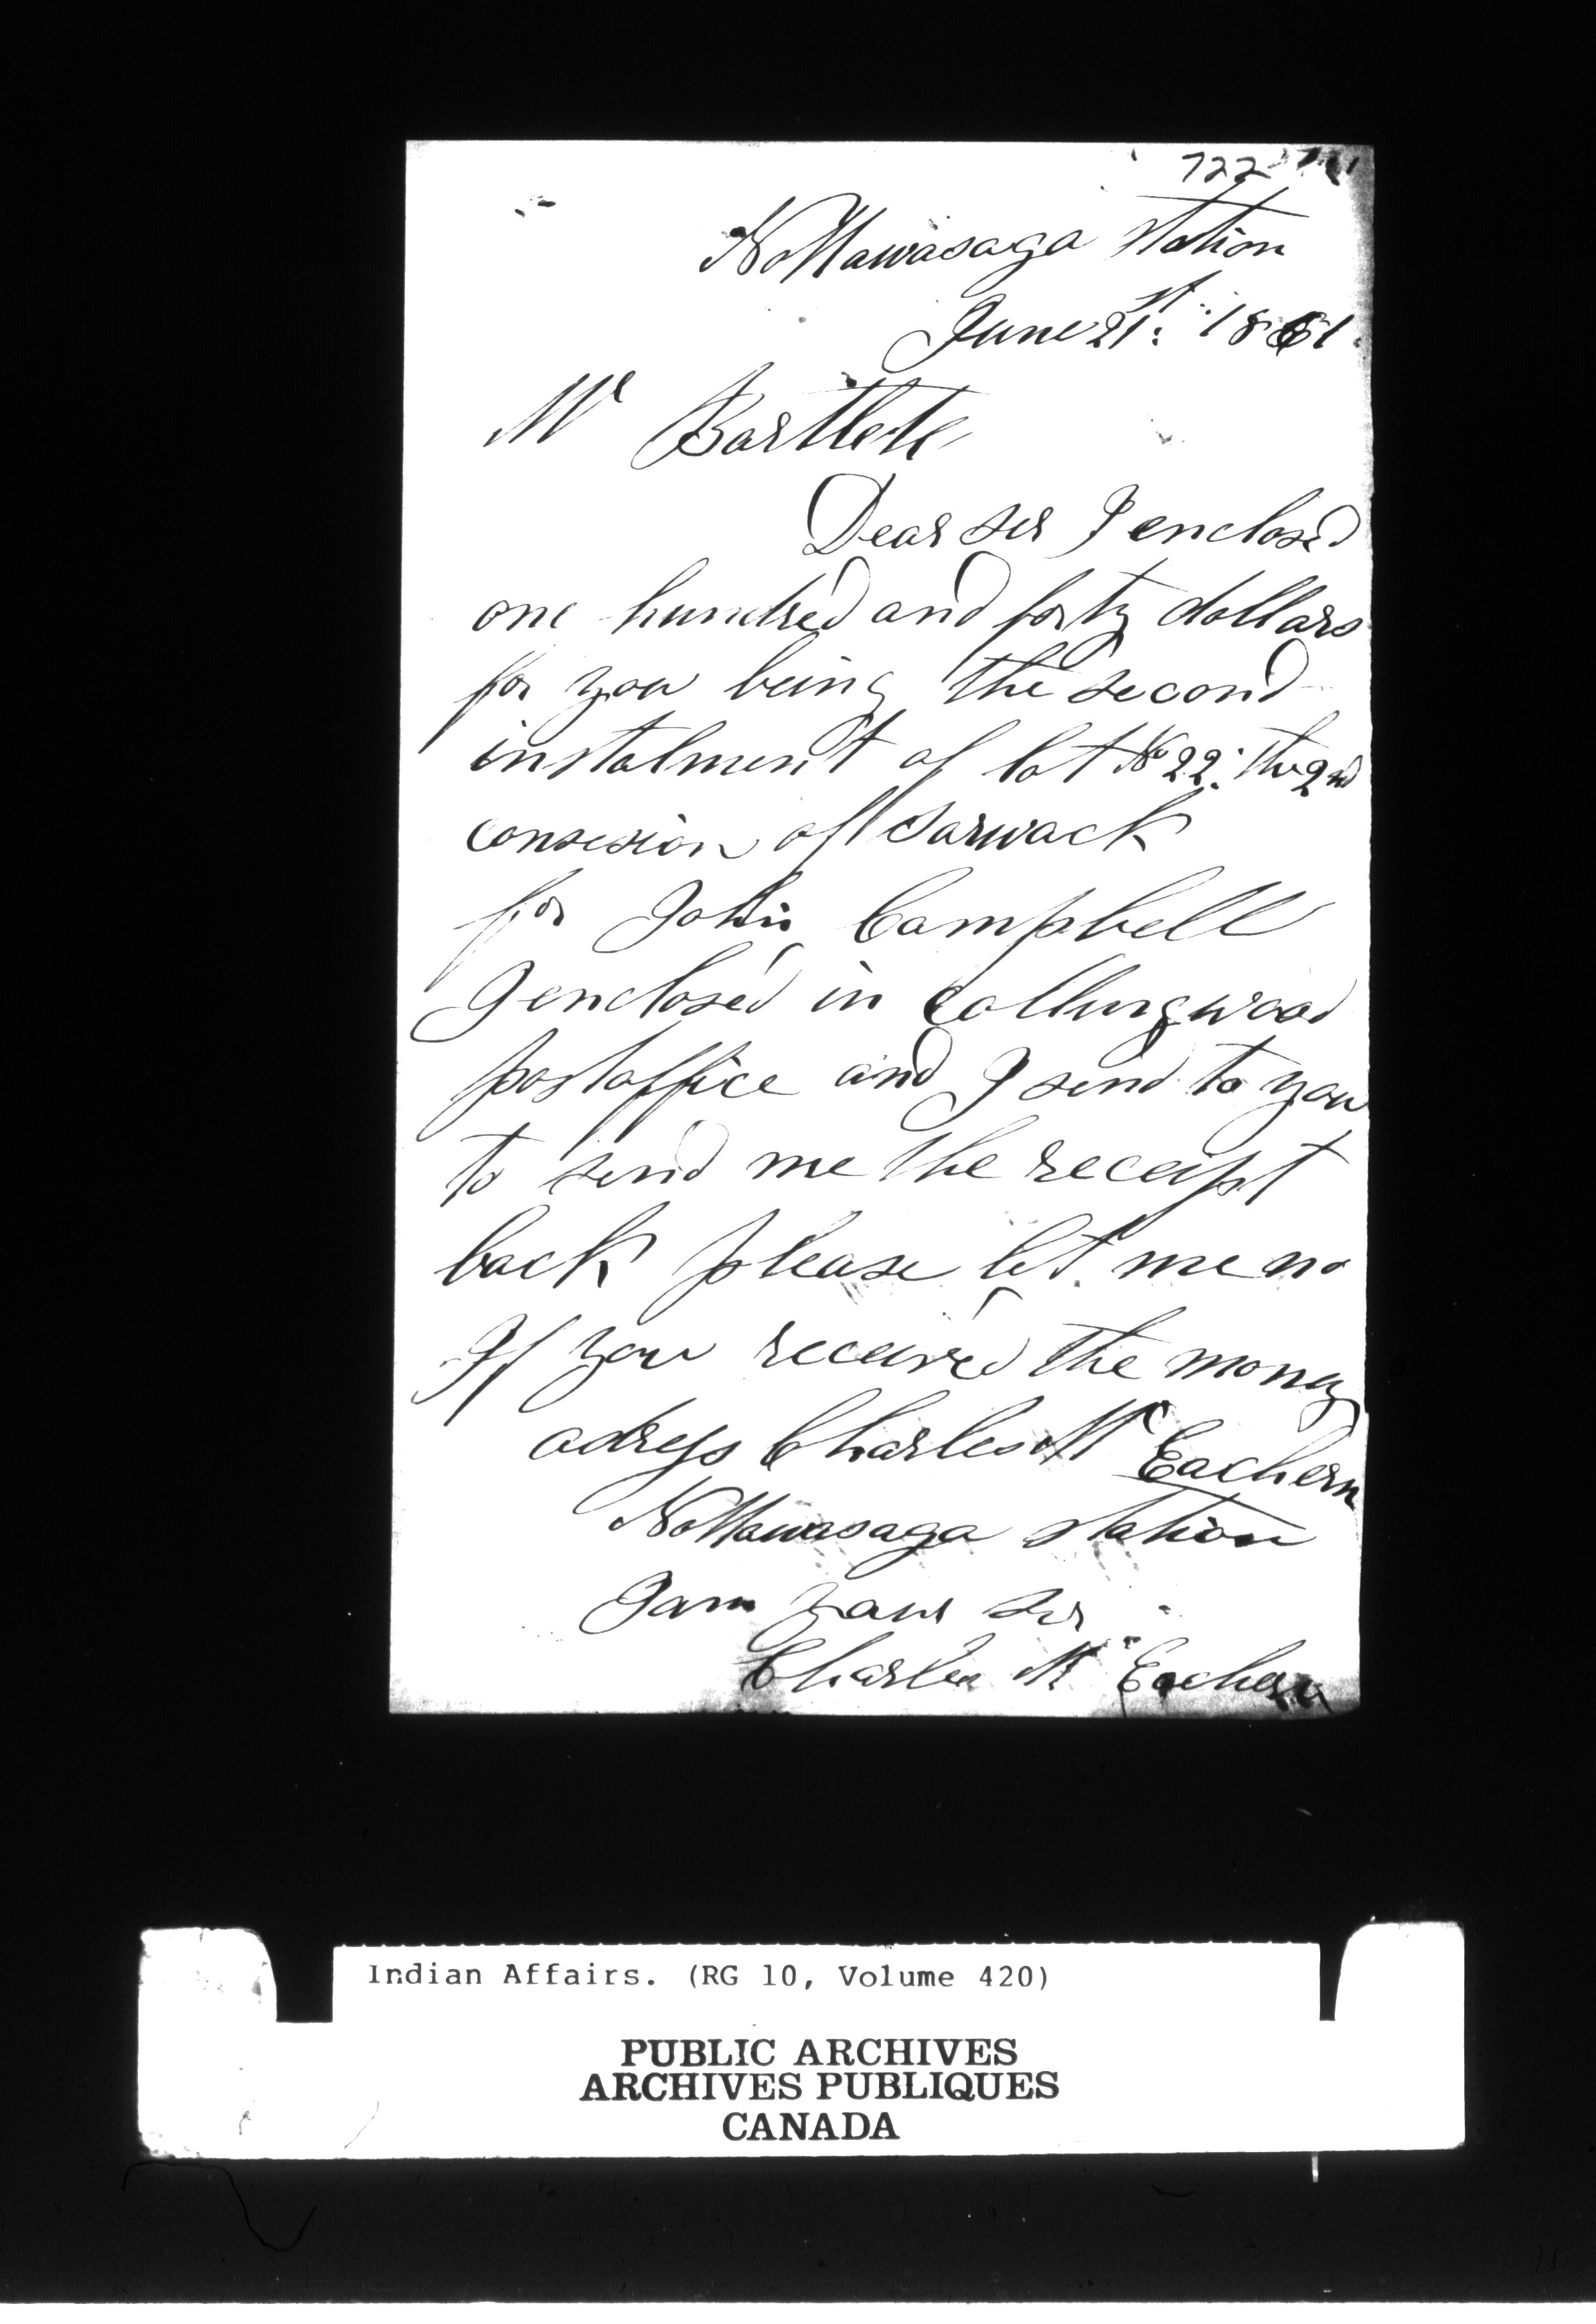 722
Nottawasaga station
June 21st 1861
Mr Bartlett
Dear sir I enclosed
one hundred and forty dollars
for you being the second
instalment of lot No 22 the 2nd
consesion of Sarwack
for John Campbell
I enclosed in Collingwood
postoffice and I send to you
to send me the receipt
back please let me no
If you received the money
adress Charles Mc Eachern
Nottawasaga station
I am your sir
Charles Mc Eachern
Indian Affairs. (RG 10, Volume 420)
PUBLIC ARCHIVES
ARCHIVES PUBLIQUES
CANADA